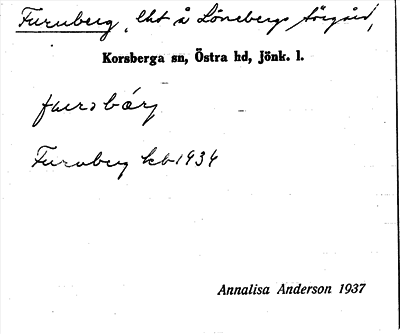 Furuberg, lht å Lönebergs Sörgård,
Korsberga sn, Östra hd, Jönk. l.
Furuberg kb 1934
Annalisa Anderson 1937